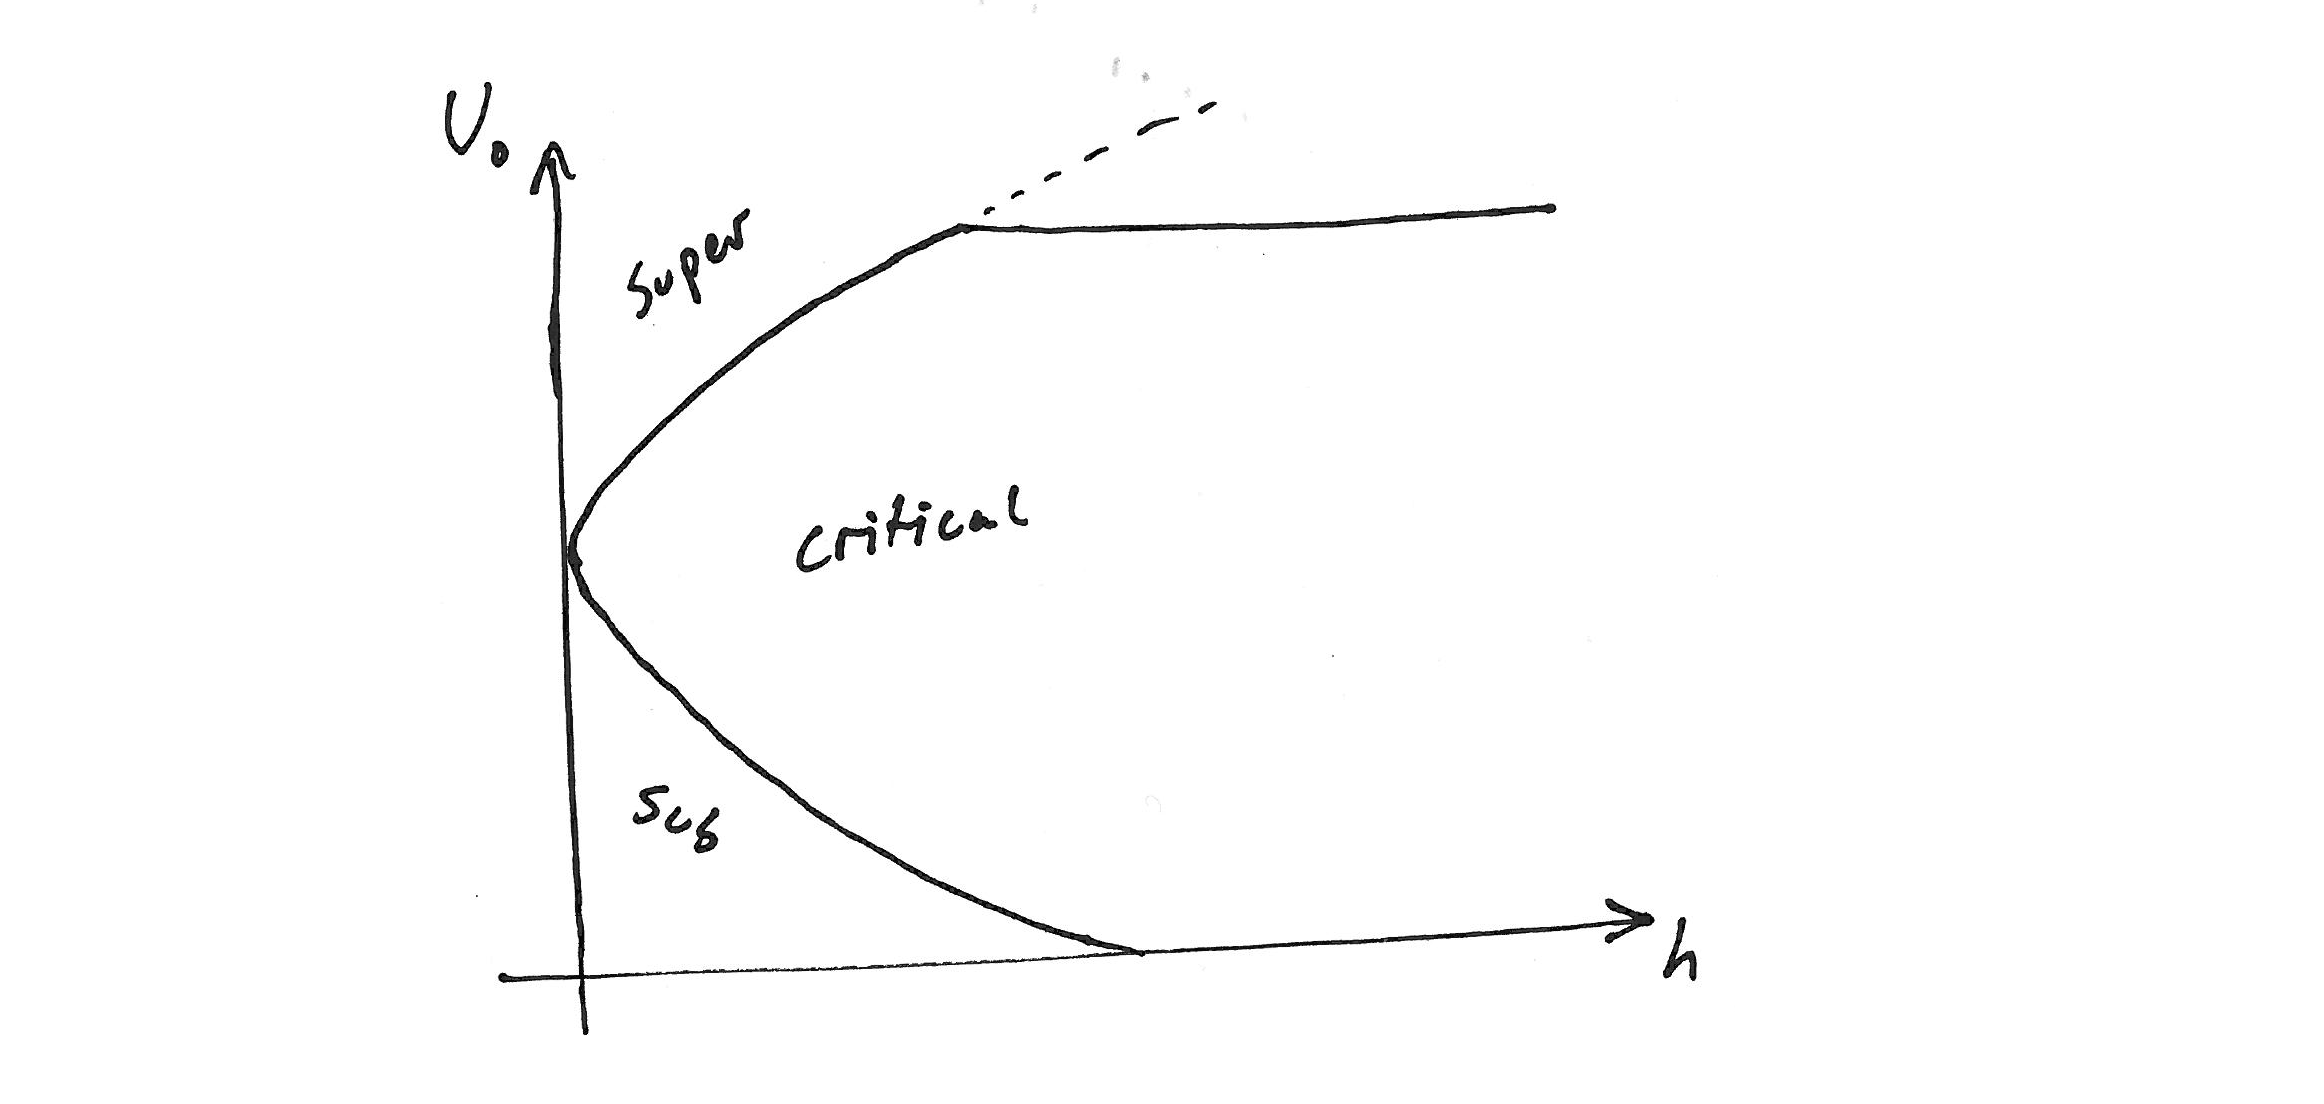 U₀
super
critical
sub
h